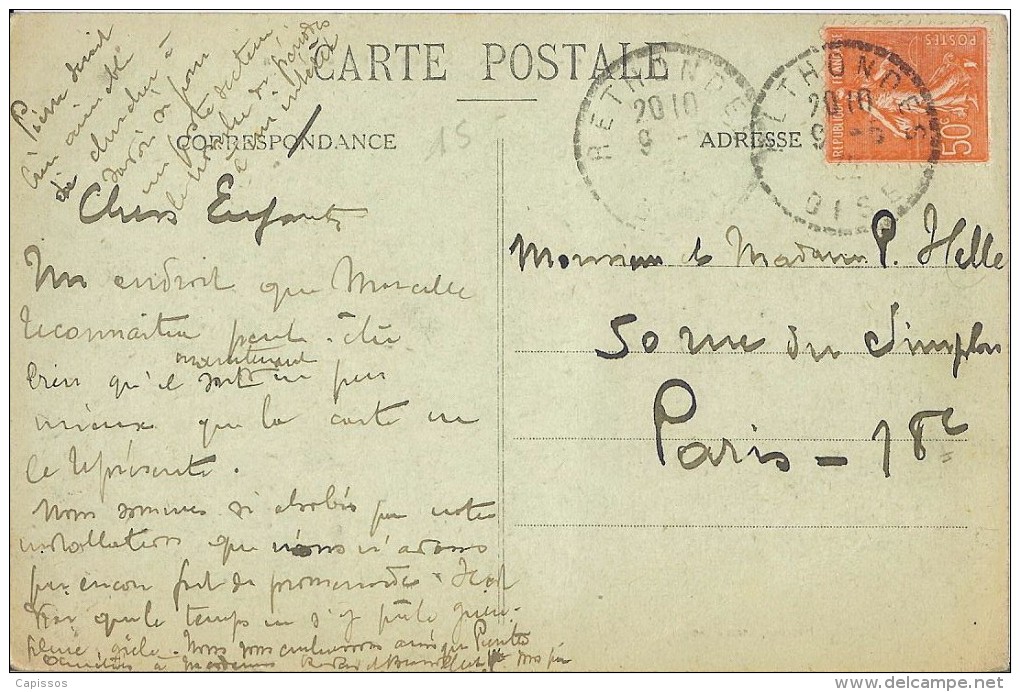 CARTE POSTALE
CORRESPONDANCE
15
ADRESSE
RETHONDES
20 10
9 - 
OISE
RETHONDES
20 10
9 - 
OISE
REPUBLIQUE FRANÇAISE
POSTES
50c
Pierre dirait
à
savoir si pour
un poste
le nombre de périodes
Chers Enfants
Un endroit que Marcelle
reconnaitra peut-être
bien qu'il soit un peu
maintenant
mieux que la carte ne
le représente.
Nous sommes si absorbés par notre
installation que nous n'avons
pas encore fait de promenades. Il est
vrai que le temps ne s'y prête guère.
pluie, grêle. Nous vous embrassons ainsi que
à
Monsieur et Madame P. Helle
50 rue du Simplon
Paris - 18e
Capissos
www.delcampe.net